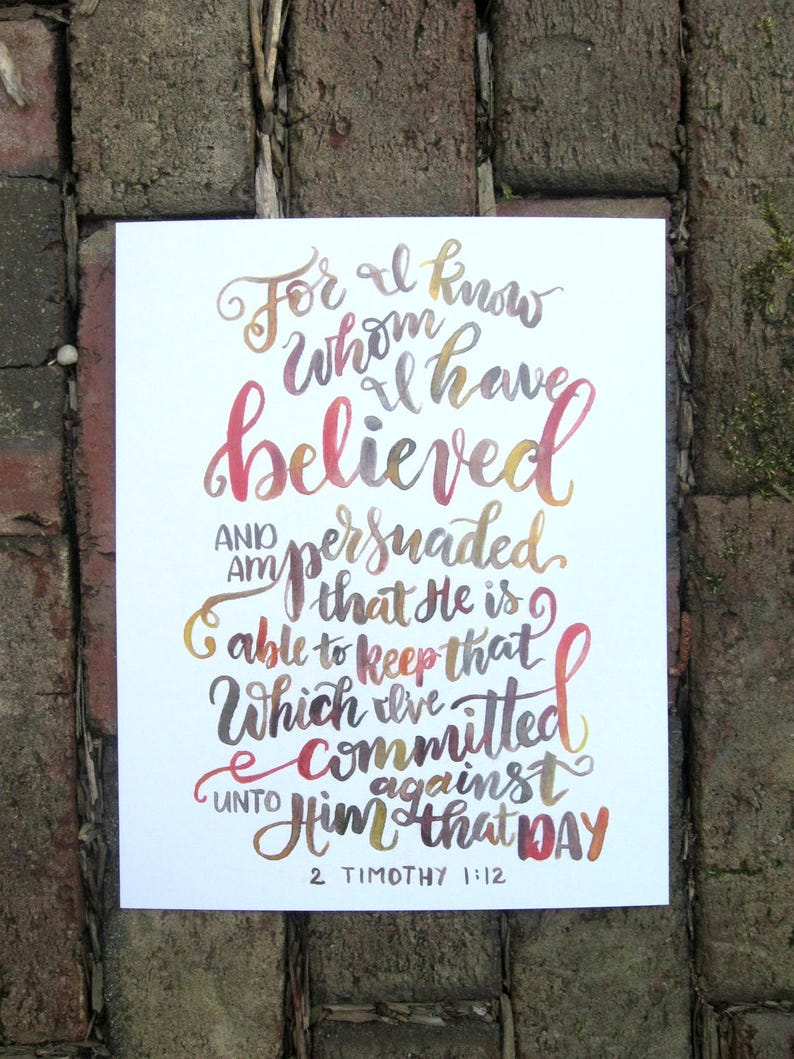 For I know
Whom
I have
believed
AND
AM persuaded
that He is
able to keep that
Which I've
committed
against
UNTO Him that DAY
2 TIMOTHY 1:12